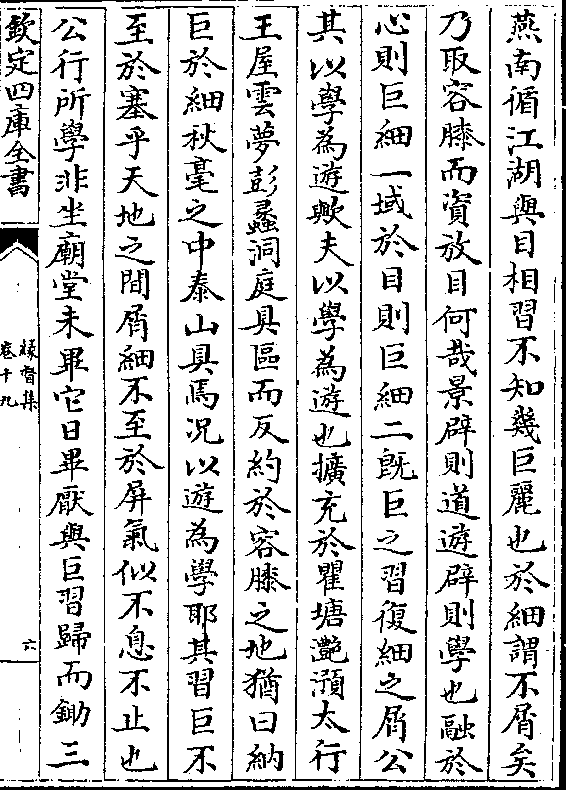 燕南循江湖與目相習不知幾巨麗也於細謂不屑矣
乃取容膝而資放目何哉景辟則道遊辟則學也融於
心則巨細一域於目則巨細二旣巨之習復細之屑公
其以學為遊歟夫以學為遊也擴充於瞿塘灔澦太行
王屋雲夢彭蠡洞庭具區而反約於容膝之地猶曰納
巨於細秋毫之中泰山具焉况以遊為學耶其習巨不
至於塞乎天地之間屑細不至於屏氣似不息不止也
公行所學非坐廟堂未畢它日畢厭與巨習歸而鋤三
欽定四庫全書
檪督集
卷十九
六